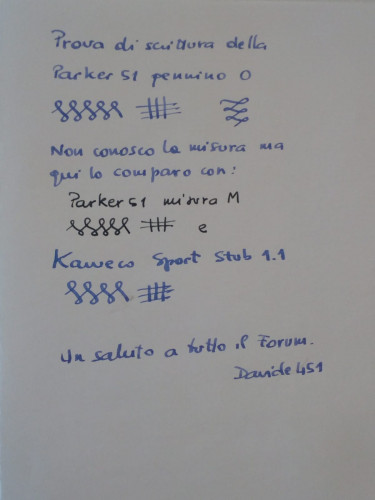 Prova di scrittura della
Parker 51 pennino O
Non conosco la misura ma
qui lo comparo con:
Parker 51 misura M
e
Kaweco Sport Stub 1.1
Un saluto a tutto il Forum.
Davide451